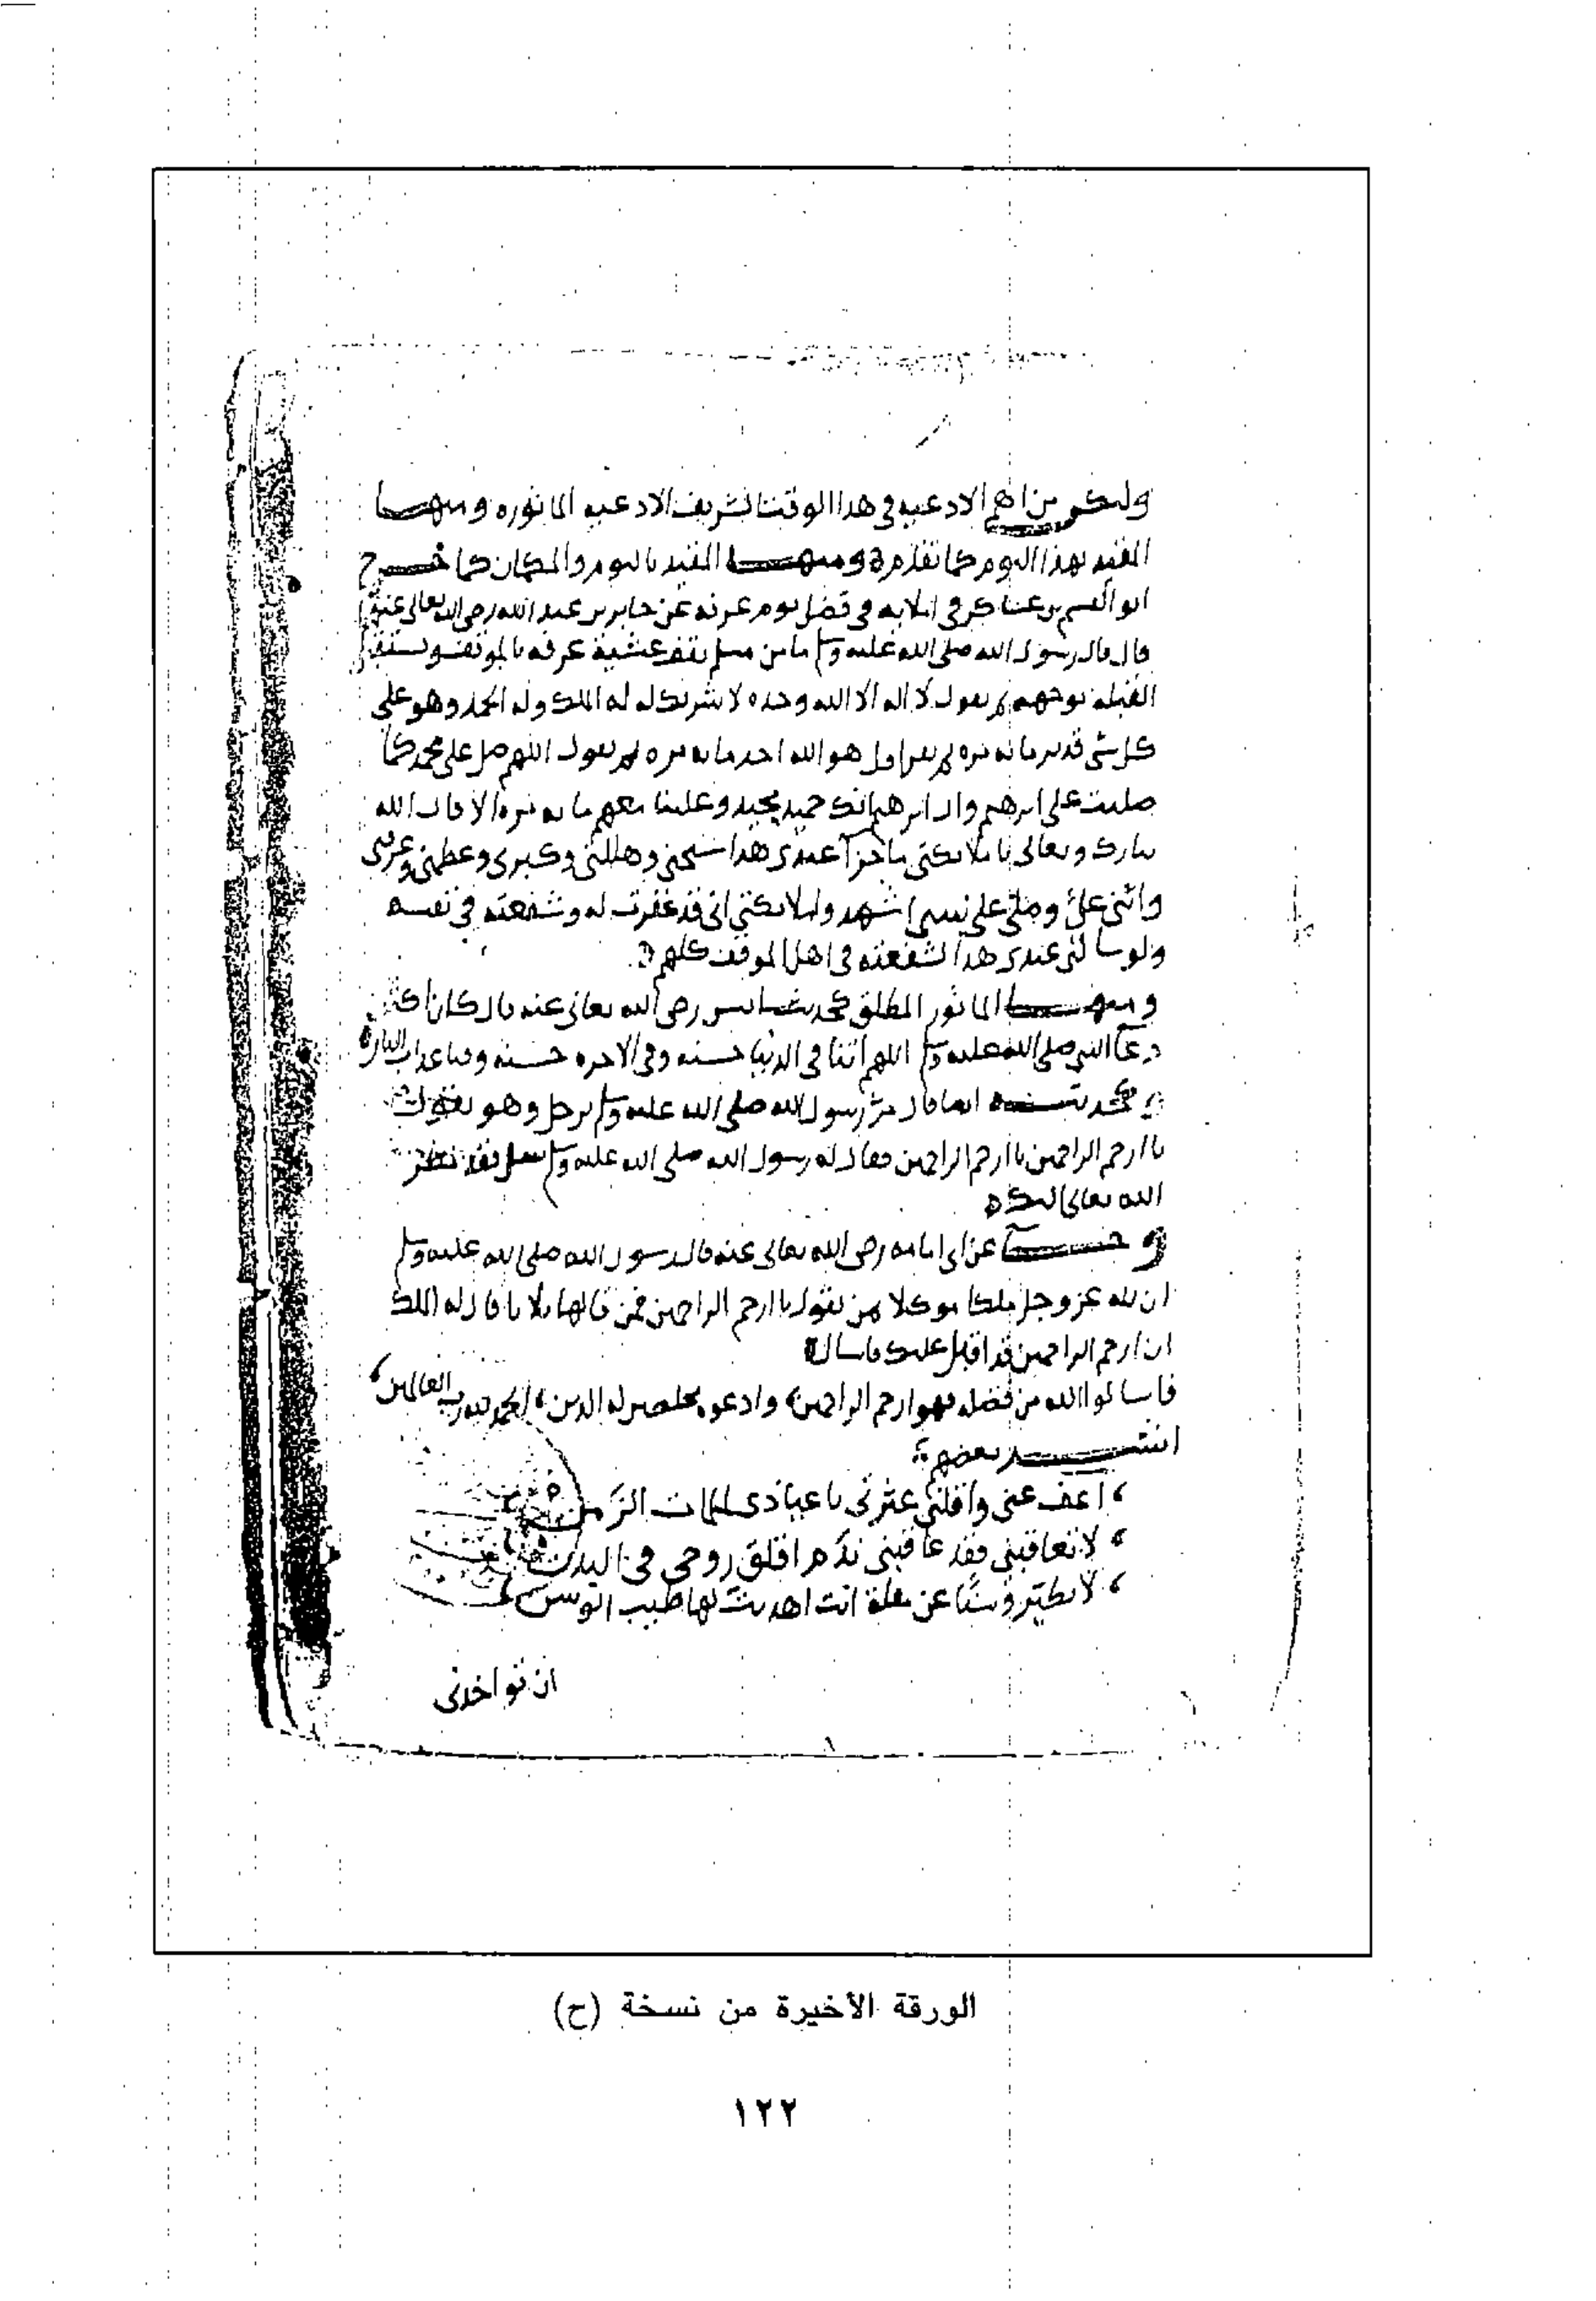 وليكن من اهم الادعيه في هذا الوقت الشريف الادعيه الماثوره ومنها
المقيد بهذا اليوم كما تقدم ومنها المقيد باليوم والمكان كما خرج
ابو القسم بن عساكر في اماليه في فضل يوم عرفه عن جابر بن عبد الله رضي الله تعالى عنه
قال قال رسول الله صلى الله عليه وسلم ما من مسلم يقف عشية عرفه بالموقف ويستقبل
القبله بوجهه ثم يقول لا اله الا الله وحده لا شريك له له الملك وله الحمد وهو على
كل شي قدير مايه مره ثم يقرا قل هو الله احد مايه مره ثم يقول اللهم صل على محمد كما
صليت على ابرهيم وال ابرهيم انك حميد مجيد وعلينا معهم مايه مره الا قال الله
تبارك وتعالى يا ملايكتي ما جزآ عبدي هذا سبحني وهللني وكبرني وعظمني وعرفني
واثنى علىّ وصلى على نبيي اشهدوا ملايكتي اني قد غفرت له وشفعته في نفسه
ولو سالني عبدي هذا لشفعته في اهل الموقف كلهم
ومنها الماثور المطلق كحديث انس رضي الله تعالى عنه قال كان اكثر
دعآ النبي صلى الله عليه وسلم اللهم آتنا في الدنيا حسنه وفي الاخره حسنه وقنا عذاب النار
وكحديثه ايضا قال مرّ رسول الله صلى الله عليه وسلم برجل وهو يقول
يا ارحم الراحمين يا ارحم الراحمين فقال له رسول الله صلى الله عليه وسلم سل فقد نظر
الله تعالى اليك
و عن ابي امامه رضي الله تعالى عنه قال رسول الله صلى الله عليه وسلم
ان لله عز وجل ملكا موكلا بمن يقول يا ارحم الراحمين فمن قالها ثلاثا قال له الملك
ان ارحم الراحمين قد اقبل عليك فاسال
فاسالوا الله من فضله فهو ارحم الراحمين وادعوه مخلصين له الدين الحمد لله رب العالمين
انشد بعضهم
اعف عني واقلني عثرتي يا عياذي لملمات الزمن
لا تعاقبني فقد عاقبني ندم اقلق روحي في البدن
لا تطيّر وسنًا عن مقلة انت اهديت لها طيب الوسن
ان تواخذني
الورقة الأخيرة من نسخة (ح)
١٢٢